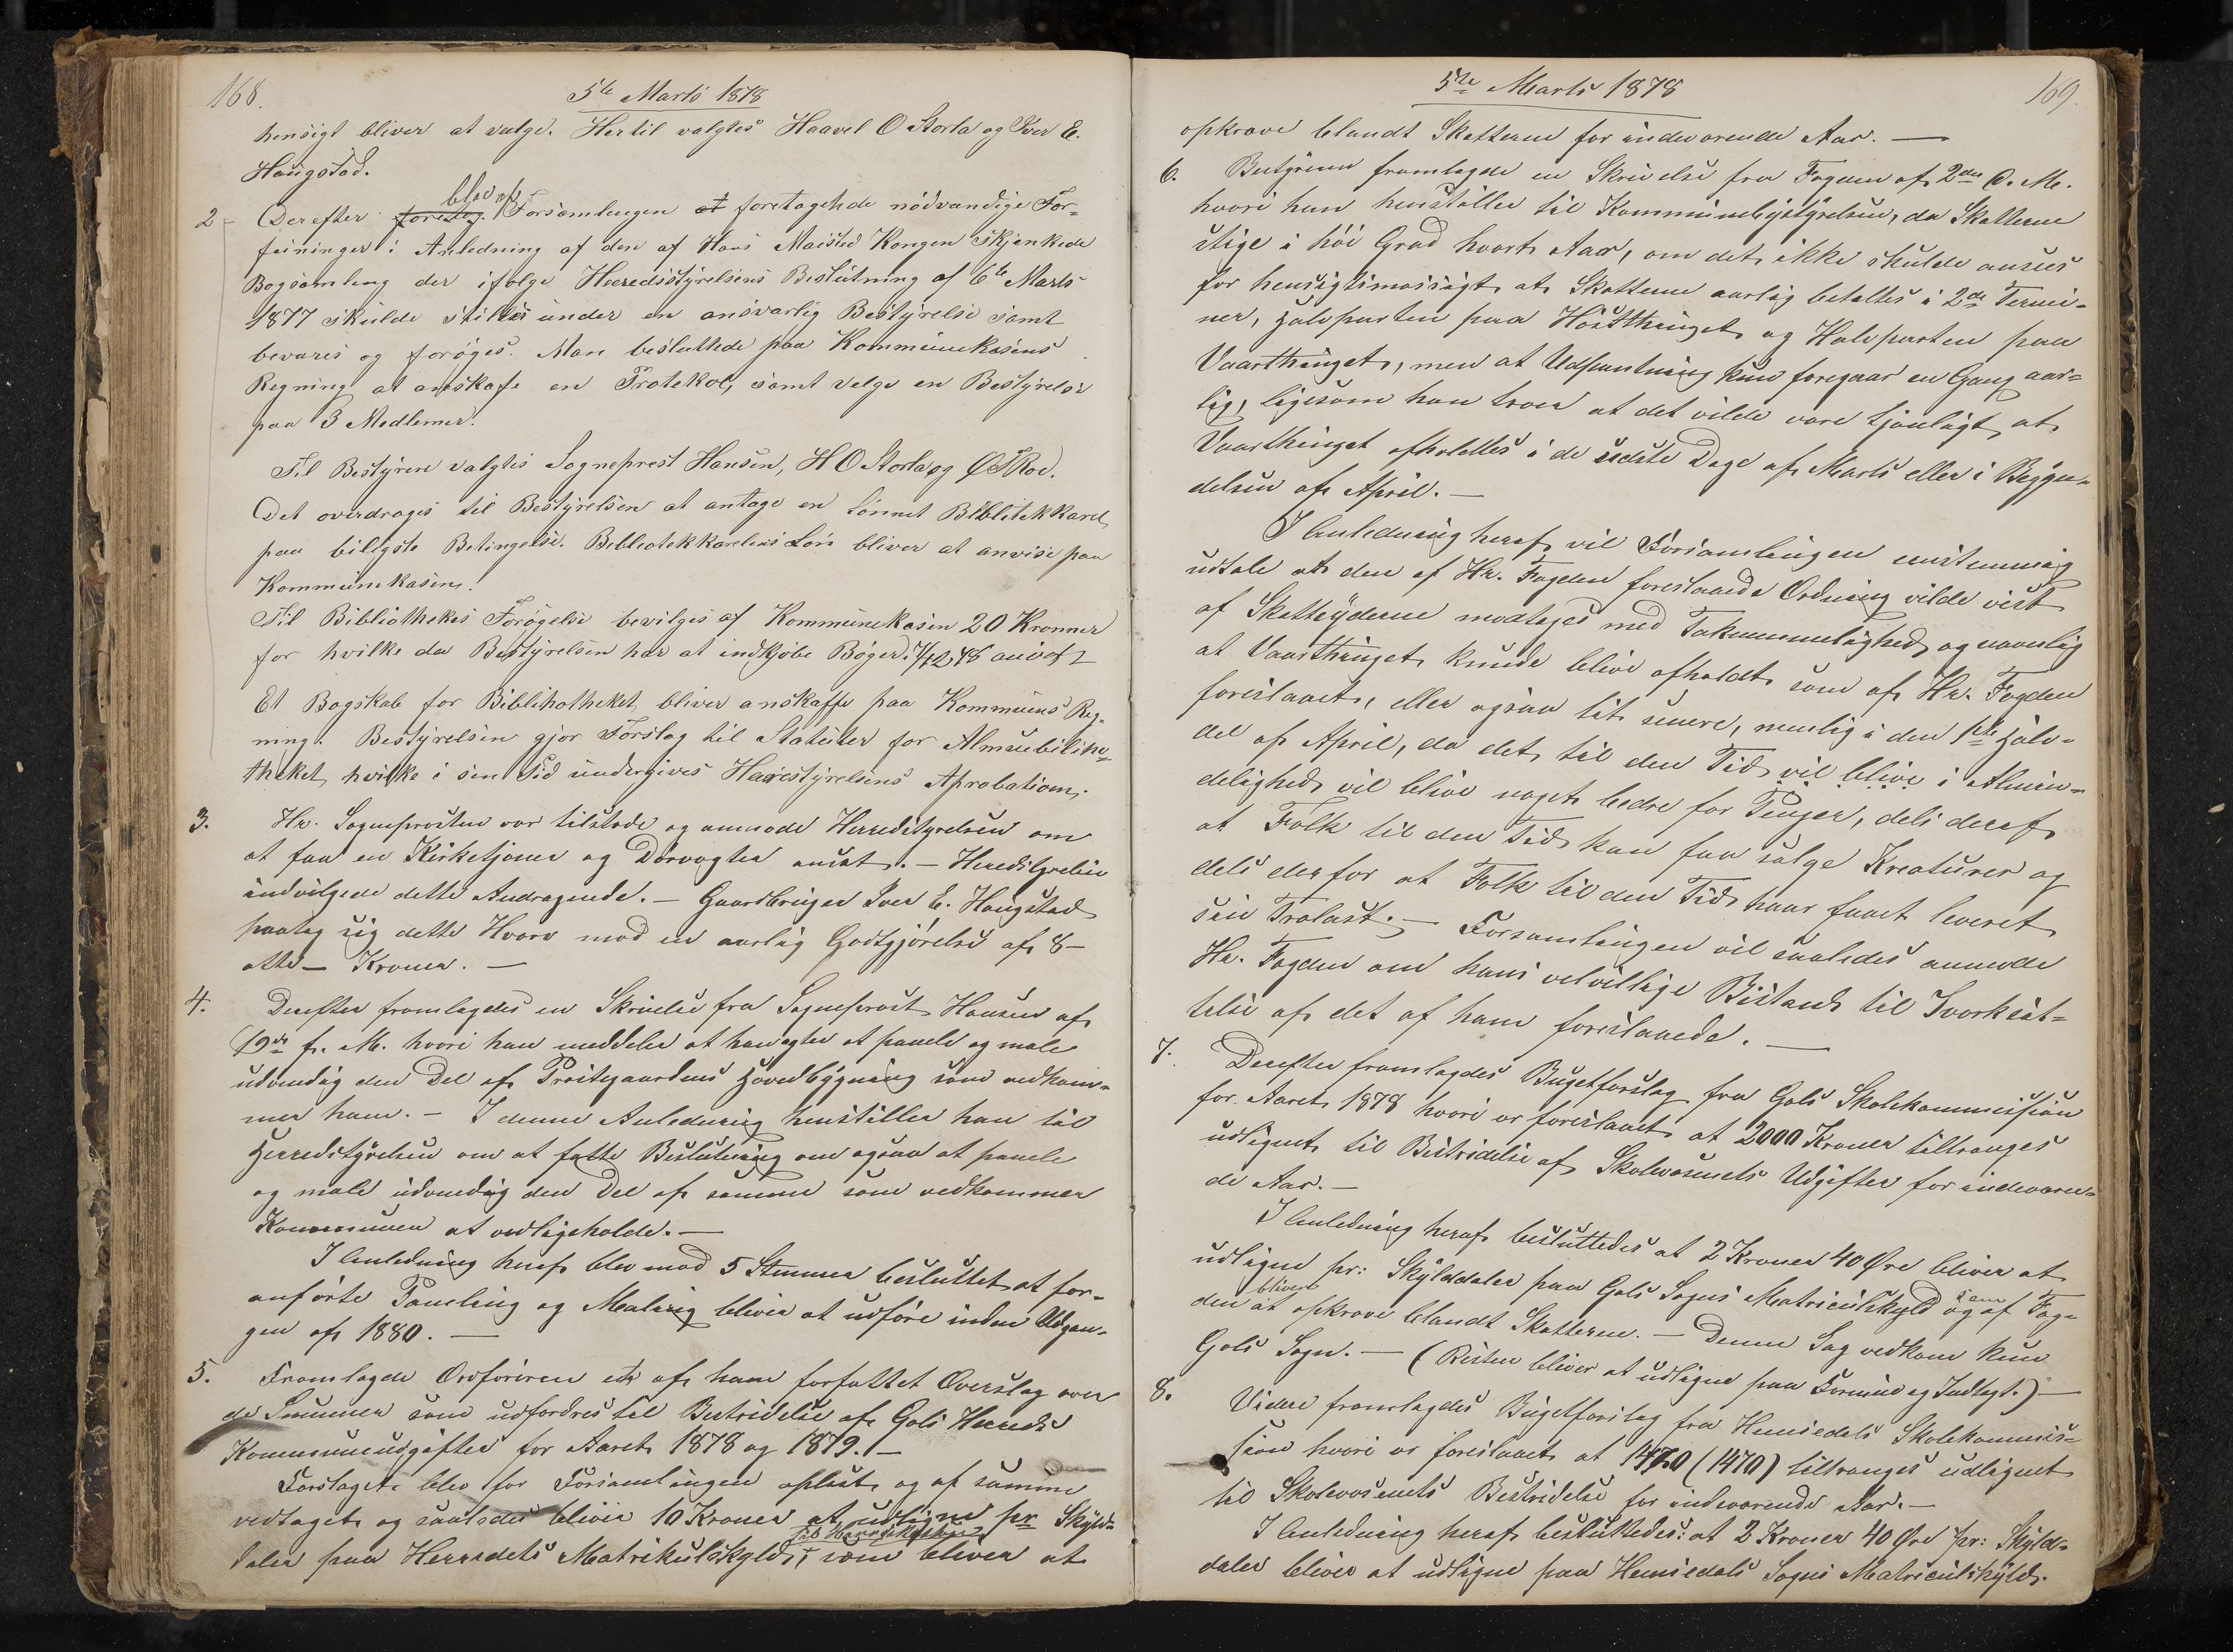 168.
5te Marts 1878
hensigt bliver at vælge. Hertil valgtes Haavel O Storla og Iver E.
Haugstad.
2 - Derefter foretog blev af Forsamlingen at foretagehde nødvændige For=
føininger i Anledning af den af Hans Maisted Kongen skjenkede
Bogsamling der ifølge Heeredsstyrelsens Beslutning af 6te Marts
1877 skulde stilles under en ansvarlig Bestyrelse samt
bevares og forøges. Man besluttede paa Kommunekasens
Regning at anskafe en Protekol, samt velge en Bestyrelse
paa 3 Medlemer.
Til Bestyrere valgtes Sogneprest Hansen, H O Storla og O T Roe.
Det overdrages til Bestyrelsen at antage en lønnet Biblitekkarel
paa biligste Betingelse. Bebliotekkarelens Løn bliver at anvise paa
Kommunekasene.
Til Bibliothekes Forøgelse bevilges af Kommunekasen 20 Kronner
for hvilke da Bestyrelsen har at indkjøbe Bøger
Et Bogskab for Biblihotheket bliver anskaffe paa Kommunens Reg=
ning. Bestyrelsen gjør Forslag til Statuter for Almuebiliho=
theket hvilke i sin Tid undergives Hærestyrelsens Aprobation.
3. Hr. Sogneprosten var tilstæde og anmode Herredstyrelsen om
at faa en Kirketjener og Dørvogter ansat. – Heredstyrelsen
indvilgede dette Andragende. – Gaardbruger Iver E. Haugstad
paatog sig dette Hværv mod en aarlig Godtgjørelse af 8 –
otte – Kroner. –
4. Derefter fremlagdes en Skrivelse fra Sogneprest Hansen af
19de f. M. hvori han meddeler at han agter at panele og male
udvendig den Del af Prestegaardens Hovedbygning som vedkom=
mer ham. – I denne Anledning henstiller han til
Herredstyrelsen om at fatte Beslutning om ogsaa at panele
og male udvendig den Del af samme som vedkommer
Kommunen at vedligeholde. –
I Anledning heraf blev mod 5 Stemmer besluttet at for=
anførte Paneling og Maling bliver at udføre inden Udgan=
gen af 1880. –
5. Fremlagde Ordføreren et af ham forfattet Overslag over
de Summer som udfordres til Bestridelse af Gols Herreds
Kommuneudgifter for Aaret 1878 og 1879. –
Forslaget blev for Forsamlingen oplæst og af samme
vedtaget og saaledes bliver 10 Kroner at udligne pr Skyld=
til Herredskassen
daler paa Herredets Matrikulskyld, som bliver at
5te Marts 1878
169.
opkræve blandt Skatterne for indeværende Aar. –
6. Bestyreren fremlagde en Skrivelse fra Fogden af 2den d. M.
hvori han henstiller til Kommunebestyrelsen, da Skatterne
stige i høi Grad hvert Aar, om det ikke skulde ansees
for hensigtsmæssigt at Skatterne aarlig betaltes i 2de Termi=
ner, Halvparten paa Høstthinget og Halvparten paa
Vaarthinget, men at Udpantning kun foregaar en Gang aar=
lig, ligesom han troer at det vilde være tjenligt, at
Vaarthinget afholdtes i de sidste Dage af Marts eller i Begyn=
delsen af April. –
I Anledning heraf vil Forsamlingen enstemmig
udtale at den af Hr. Fogden foreslaaede Ordning vilde vist
af Skatteyderne modtages med Taknemmelighed, og navnlig
at Vaarthinget kunde blive afholdt som af Hr. Fogden
foreslaaet, eller ogsaa lit senere, nemlig i den 1ste Halv=
del af April, da det til den Tid vil blive i Almin=
delighed vil blive noget bedre for Penger, dels deraf
at Folk til den Tid kan faa sælge Kreaturer og
dels derfor at Folk til den Tid haar faaet leveret
sin Trælast. – Forsamlingen vil saaledes anmode
Hr. Fogden om hans velvillige Bistand til Iværksæt=
telse af det af ham foreslaaede. –
7. Derefter fremlagdes Bugetforslag fra Gols Skolekommission
for Aaret 1878 hvori er foreslaaet at 2000 Kroner tiltrænges
udlignet til Bestridelse af Skolevæsenets Udgifter for indeværen=
de Aar. –
I Anledning heraf besluttedes at 2 Kroner 40 Øre bliver at
udligne pr: Skylddaler paa Gols Sogns Matriculskyld som og af Fog=
den bliver at opkræve blandt Skatterne. – Denne Sag vedkom kun
Gols Sogn. – (Resten bliver at udligne paa Formue og Indtægt.) –
8. Videre fremlagdes Bugetforslag fra Hemsedals Skolekommis=
sion hvori er foreslaaet at 1470 (1470) tiltrænges udlignet
til Skolevæsenets Bestridelse for indeværende Aar. –
I Anledning heraf besluttedes: at 2 Kroner 40 Øre pr: Skyld=
daler bliver at udligne paa Hemsedals Sogns Matriculskyld.